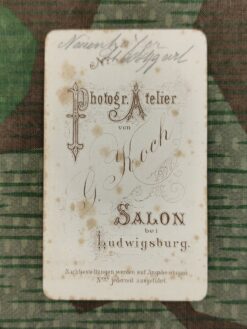 No.
Photogr. Atelier
von
G. Koch
SALON
bei
Ludwigsburg.
Nachbestellungen werden auf Angabe einiger
Nros jederzeit ausgeführt.